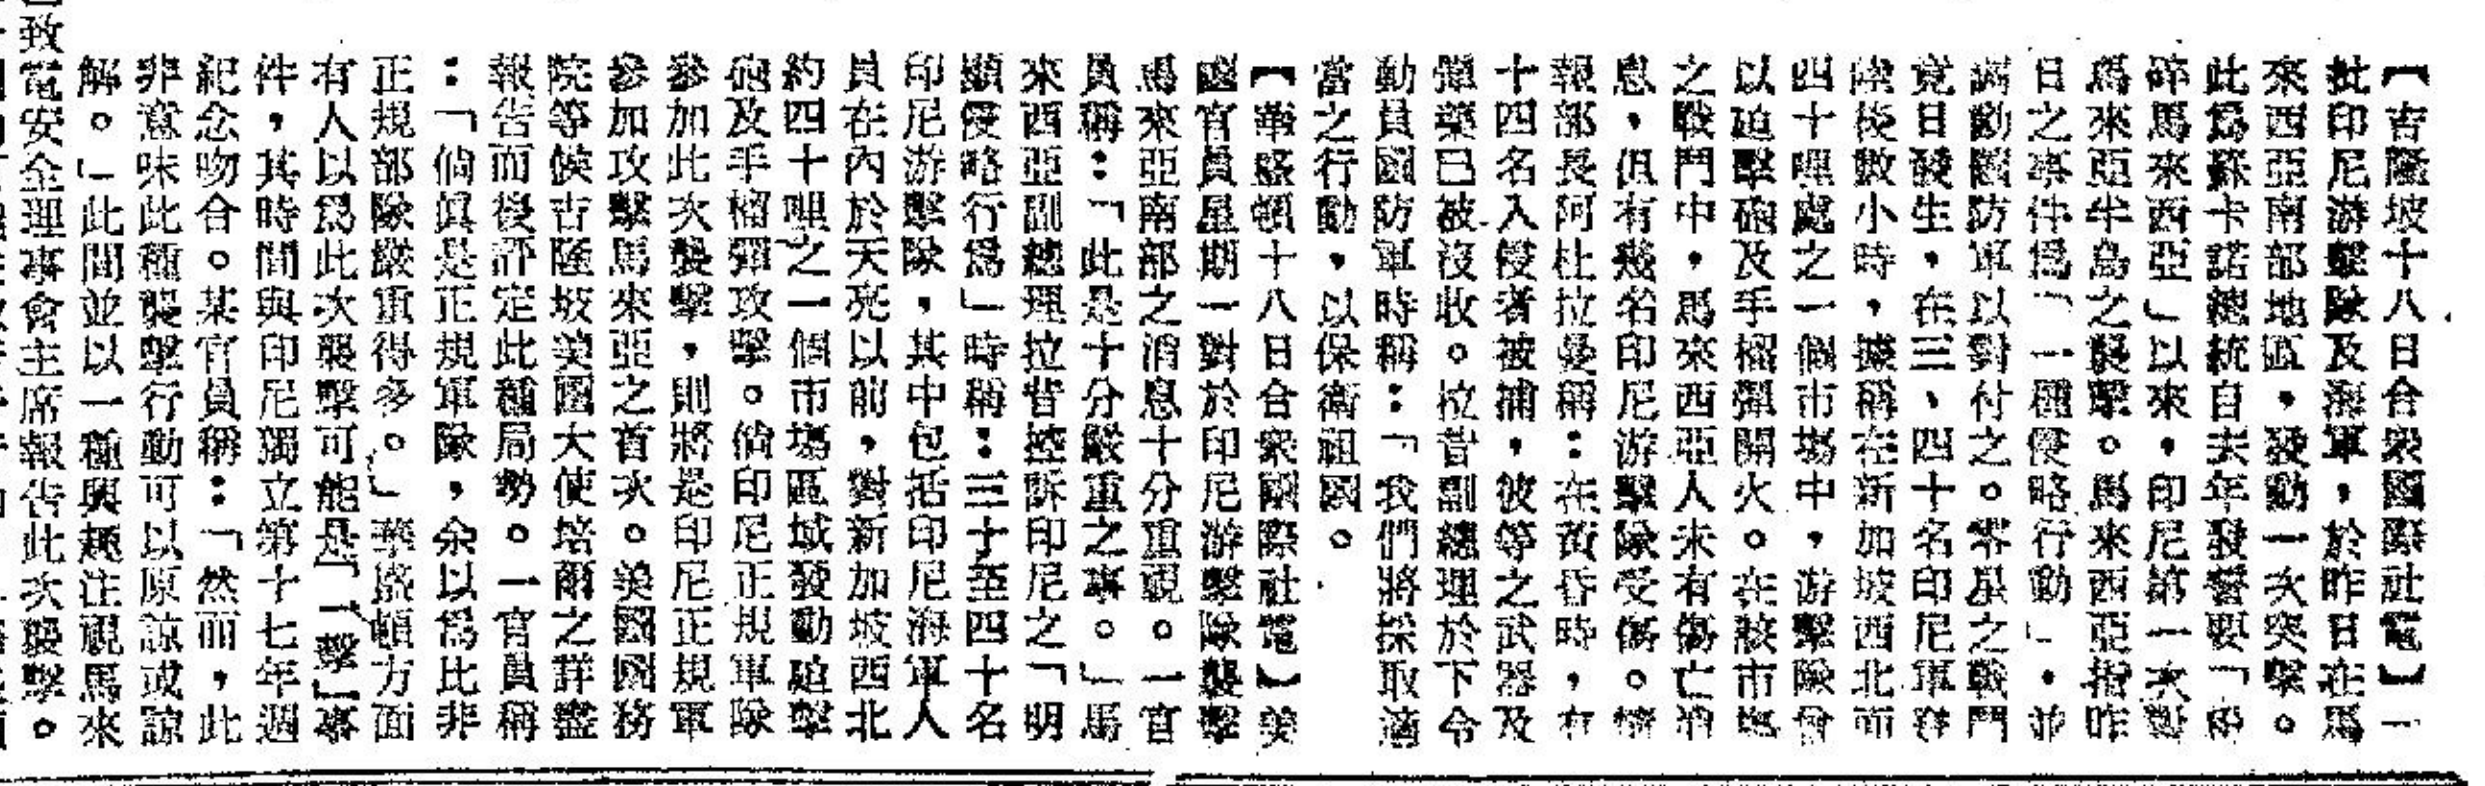 【吉隆坡十八日合衆國際社電】一
批印尼游擊隊及海軍，於昨日在馬
來西亞南部地區，發動一次突擊。
此爲蘇卡諾總統自去年發誓要「粉
碎馬來西亞」以來，印尼第一次對
馬來亞半島之襲擊。馬來西亞指昨
日之事件爲「一種侵略行動」，並
調動國防軍以對付之。零星之戰鬥
竟日發生，在三、四十名印尼軍登
陸後數小時，據稱在新加坡西北面
四十哩處之一個市場中，游擊隊曾
以迫擊砲及手榴彈開火。在該市場
之戰鬥中，馬來西亞人未有傷亡消
息，但有幾名印尼游擊隊受傷。情
報部長阿杜拉曼稱：在黃昏時，有
十四名入侵者被捕，彼等之武器及
彈藥已被沒收。拉昔副總理於下令
動員國防軍時稱：「我們將採取適
當之行動，以保衛祖國。
【華盛頓十八日合衆國際社電】美
國官員星期一對於印尼游擊隊襲擊
馬來亞南部之消息十分重視。一官
員稱：「此是十分嚴重之事。」馬
來西亞副總理拉昔控訴印尼之「明
顯侵略行爲」時稱：三十至四十名
印尼游擊隊，其中包括印尼海軍人
員在內於天亮以前，對新加坡西北
約四十哩之一個市場區域發動迫擊
砲及手榴彈攻擊。倘印尼正規軍隊
參加此次襲擊，則將是印尼正規軍
參加攻擊馬來亞之首次。美國國務
院等候吉隆坡美國大使培爾之詳盡
報告而後評定此種局勢。一官員稱
：「倘眞是正規軍隊，余以爲比非
正規部隊嚴重得多。」華盛頓方面
有人以爲此次襲擊可能是「一擊」事
件，其時間與印尼獨立第十七年週
紀念吻合。某官員稱：「然而，此
非意味此種襲擊行動可以原諒或諒
解。」此間並以一種興趣注視馬來
致電安全理事會主席報告此次襲擊。